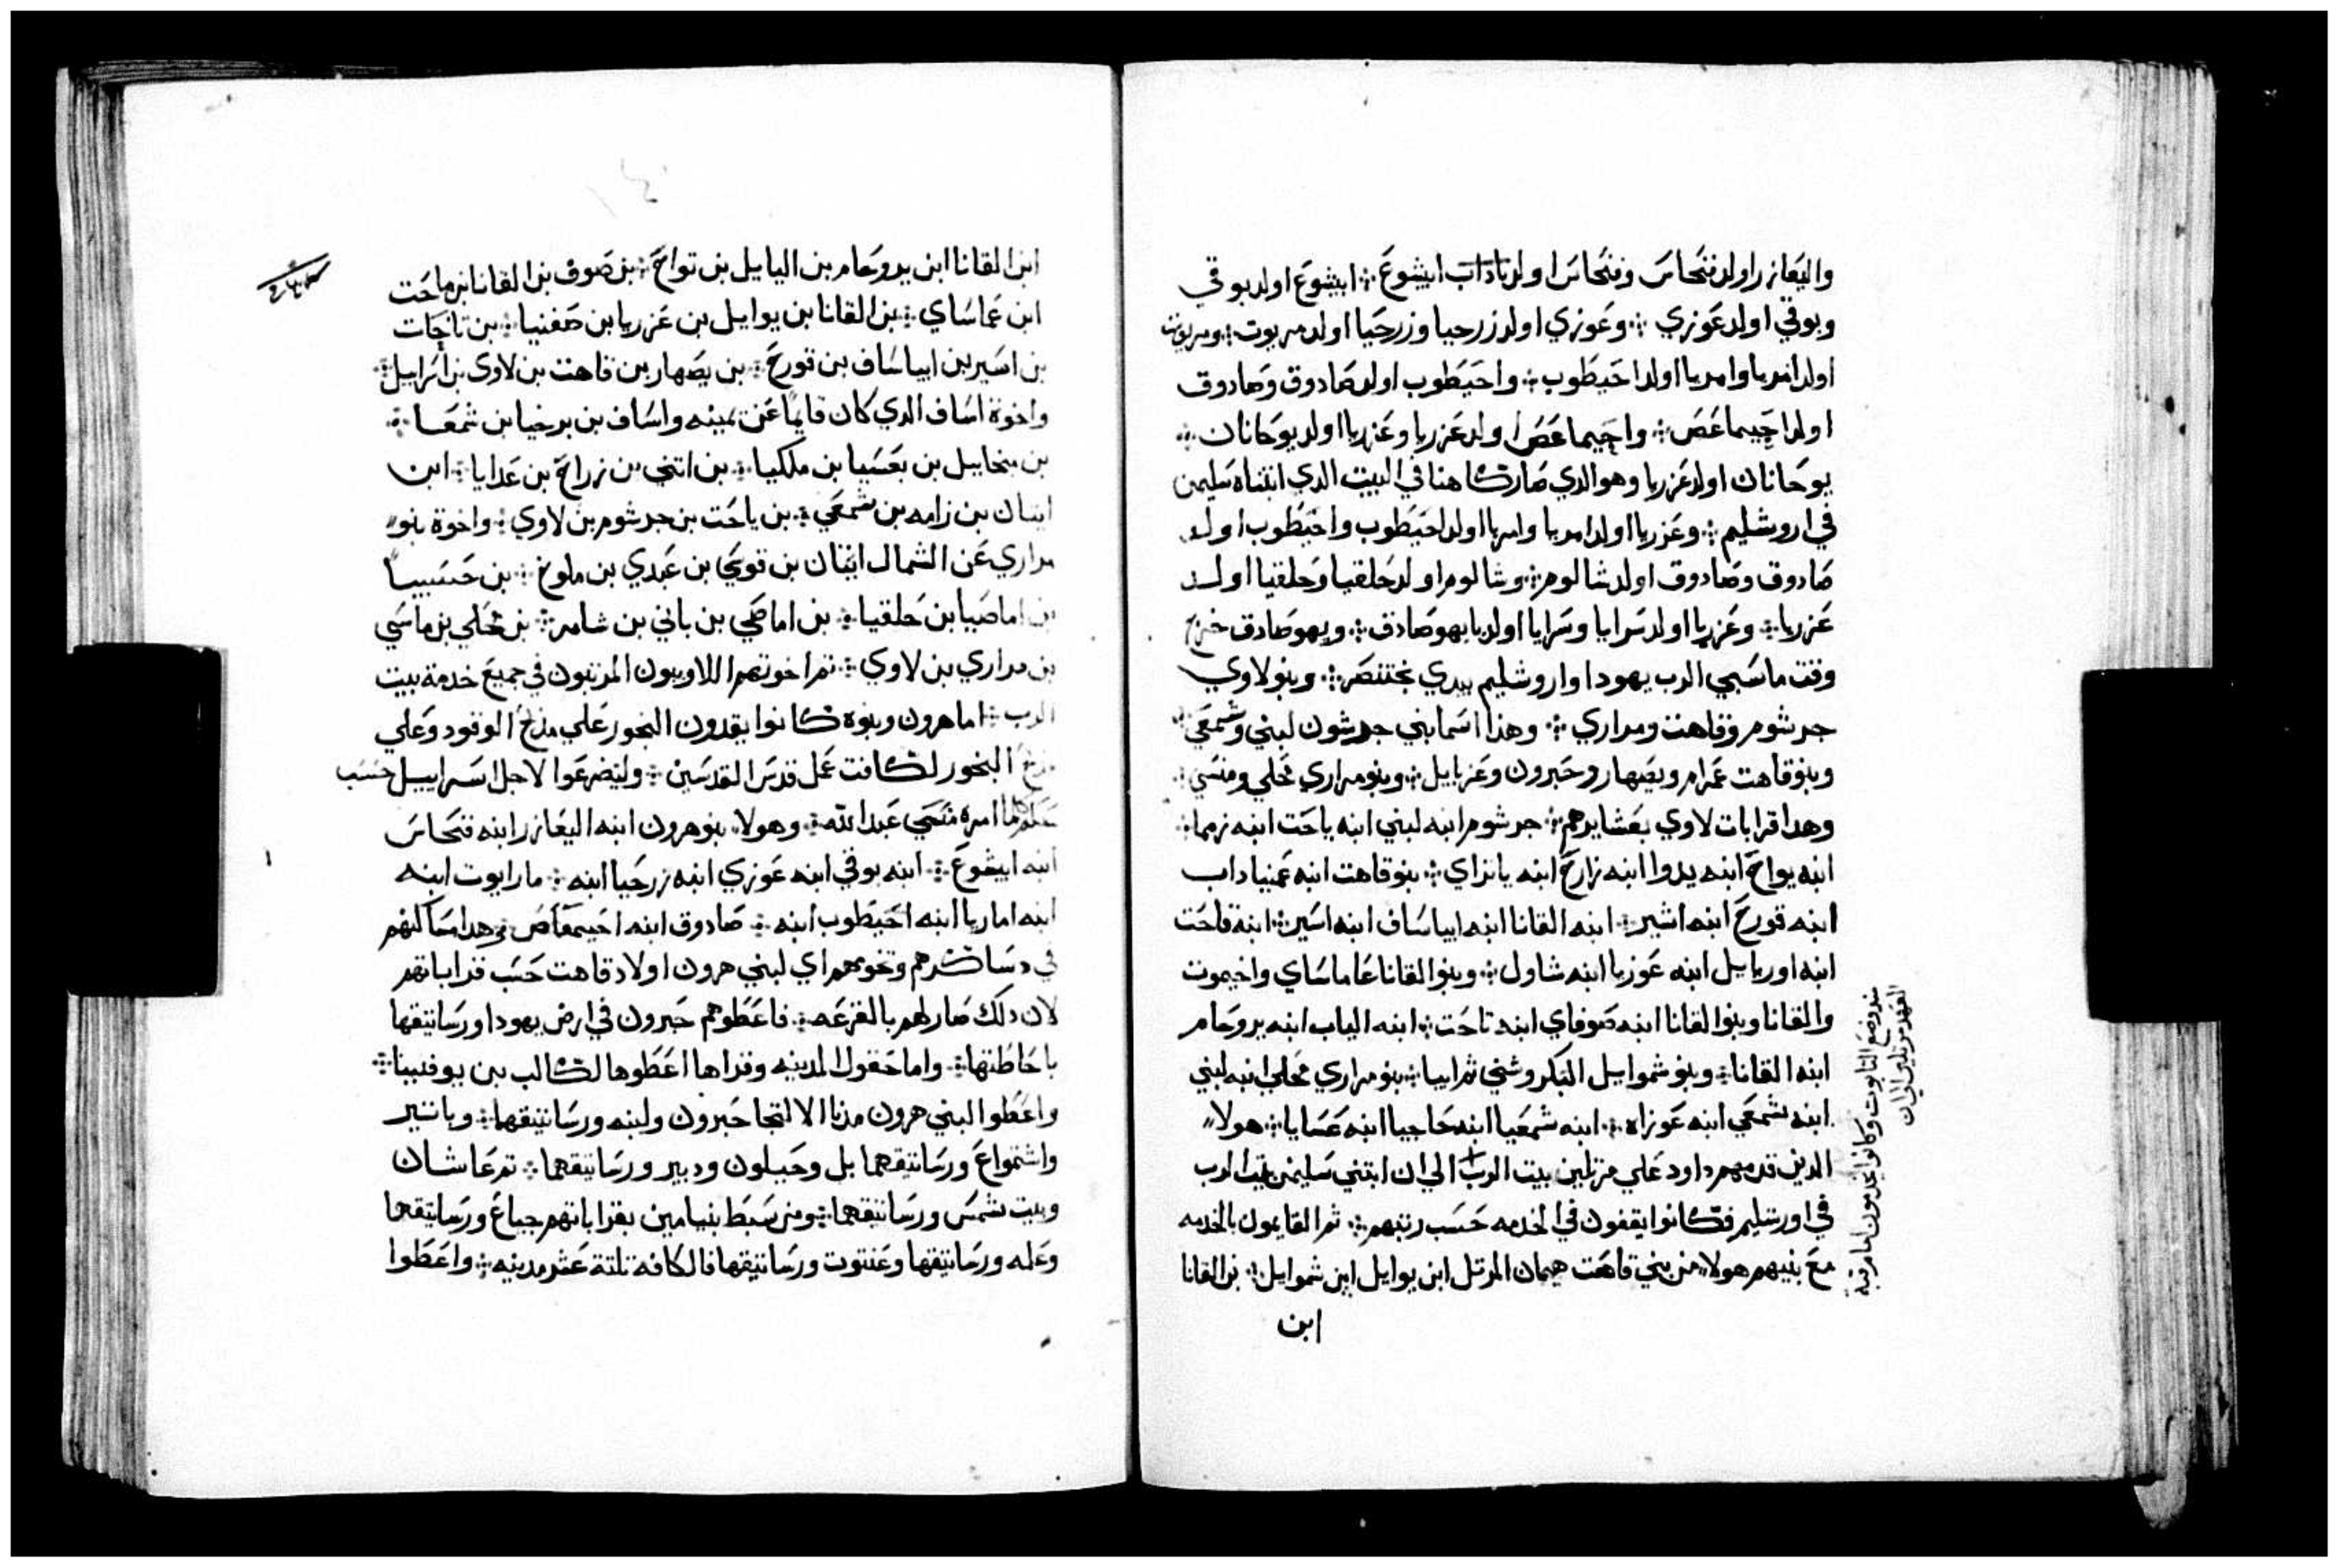 واليعازر اولد فنحاس وفنحاس اولد ناداب ابيشوع ابيشوع اولد بوقي
وبوقي اولد عوزي وعوزي اولد زرحيا وزرحيا اولد مريوت ومريوت
اولد امريا وامريا اولد احيطوب واحيطوب اولد صادوق وصادوق
اولد احيماعص واحيماعص اولد عزريا وعزريا اولد يوحانان
يوحانان اولد عزريا وهو الدي صار كاهنا في البيت الدي ابتناه سليمن
في اروشليم وعزريا اولد امريا وامريا اولد احيطوب واحيطوب اولد
صادوق وصادوق اولد شالوم وشالوم اولد حلقيا وحلقيا اولد
عزريا وعزريا اولد سرايا وسرايا اولد يهوصادق ويهوصادق خرج
وقت ما سبي الرب يهودا واروشليم بيدي بختنصر وبنو لاوي
جرشوم وقاهت ومراري وهدا اسما بني جرشون لبني وشمعي
وبنو قاهت عمرام ويصهار وحبرون وعزيايل وبنو مراري محلي ومنسي
وهدا قرابات لاوي بعشايرهم جرشوم ابنه لبني ابنه ياحت ابنه زمما
ابنه يواح ابنه يدوا ابنه زارح ابنه ياتراي بنو قاهت ابنه عمنياداب
ابنه قورح ابنه اشير ابنه القانا ابنه ابياساف ابنه اسير ابنه قاحت
ابنه اوريايل ابنه عوزيا ابنه شاول وبنوا القانا عاماساي واخيموت
والقانا وبنوا القانا ابنه صوفاي ابنه تاحت ابنه الياب ابنه يروحام
ابنه القانا وبنو شموايل البكر وشني ثم ابيا بنو مراري محلي ابنه لبني
ابنه شمعي ابنه عوزاه ابنه شمعيا ابنه حاجيا ابنه عسايا هولا
الدين قدمهم داود علي مرتلين بيت الرب الي ان ابتني سليمن بيت الرب
في اورشليم فكانوا يقفون في الخدمه حسب رتبهم ثم القايمون بالخدمه
مع بنيهم هولا من بني قاهت هيمان المرتل ابن يوايل ابن شموايل بن القانا
ابن
منذ وضع التابوت وكانوا يخدمون امام قبة
العهد مرتلين الي ان
ابن القانا ابن يروحام بن اليايل بن تواح بن صوف بن القانا بن ماحت
ابن عماساي بن القانا بن يوايل بن عزريا بن صفنيا بن تاحات
بن اسير بن ابياساف بن قورح بن يصهار بن قاهت بن لاوي بن اسرايل
واخوة اساف الدي كان قايما عن يمينه واساف بن برخيا بن شمعا
بن ميخاييل بن بعسيا بن ملكيا بن اتني بن زراح بن عدايا ابن
ايتان بن زامه بن شمعي بن ياحت بن جرشوم بن لاوي واخوة بنو
مراري عن الشمال ايتان بن قوسي بن عبدي بن ملوخ بن حسبيا
بن اماصيا بن حلقيا بن اماصي بن باني بن شامر بن محلي بن ماسي
بن مراري بن لاوي ثم اخوتهم اللاويون المرتبون في جميع خدمة بيت
الرب اما هرون وبنوه كانوا يقدون البخور علي مذبح الوقود وعلي
مذبح البخور لكافت عمل قدس القدسين وليضرعوا لاجل اسراييل حسب
كلما امره موسي عبد الله وهولا بنو هرون ابنه اليعازر ابنه فنحاس
ابنه ابيشوع ابنه بوقي ابنه عوزي ابنه زرحيا ابنه مارايوت ابنه
ابنه اماريا ابنه احيطوب ابنه صادوق ابنه احيمعاص وهدا مساكنهم
في دساكرهم وتخومهم اي لبني هرون اولاد قاهت حسب قراباتهم
لان دلك صار لهم بالقرعه فاعطوهم حبرون في ارض يهودا ورساتيقها
باحاطتها واما حقول المدينه وقراها اعطوها لكالب بن يوفنينا
واعطوا لبني هرون مدنا الالتجا حبرون ولبنه ورساتيقها وياتير
واشتواع ورساتيقهما بل وحيلون ودبير ورساتيقهما ثم عاشان
وبيت شمس ورساتيقهما ومن سبط بنيامين بقراباتهم جبياع ورساتيقها
وعله ورساتيقها وعنتوت ورساتيقها فالكافه تلتة عشر مدينه واعطوا